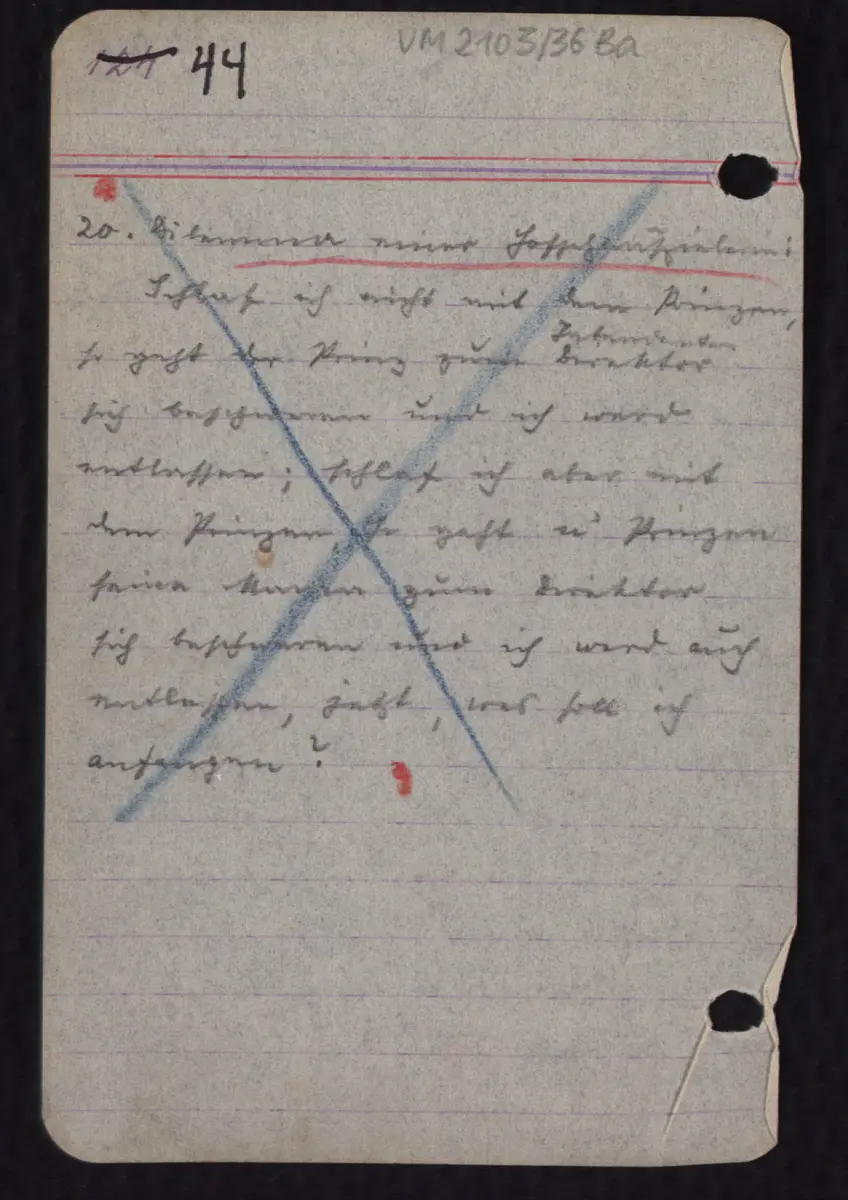 124 44
VM 2103/36 Ba
20. Dilemma einer Hofschauspielerin:
Schlaf ich nicht mit dem Prinzen,
Intendanten
so geht der Prinz zum Direktor
sich beschweren und ich werd
entlassen; schlaf ich aber mit
dem Prinzen, so geht n' Prinzen
seine
zum Direktor
sich beschweren und ich werd auch
entlassen, jetzt, was soll ich
anfangen?